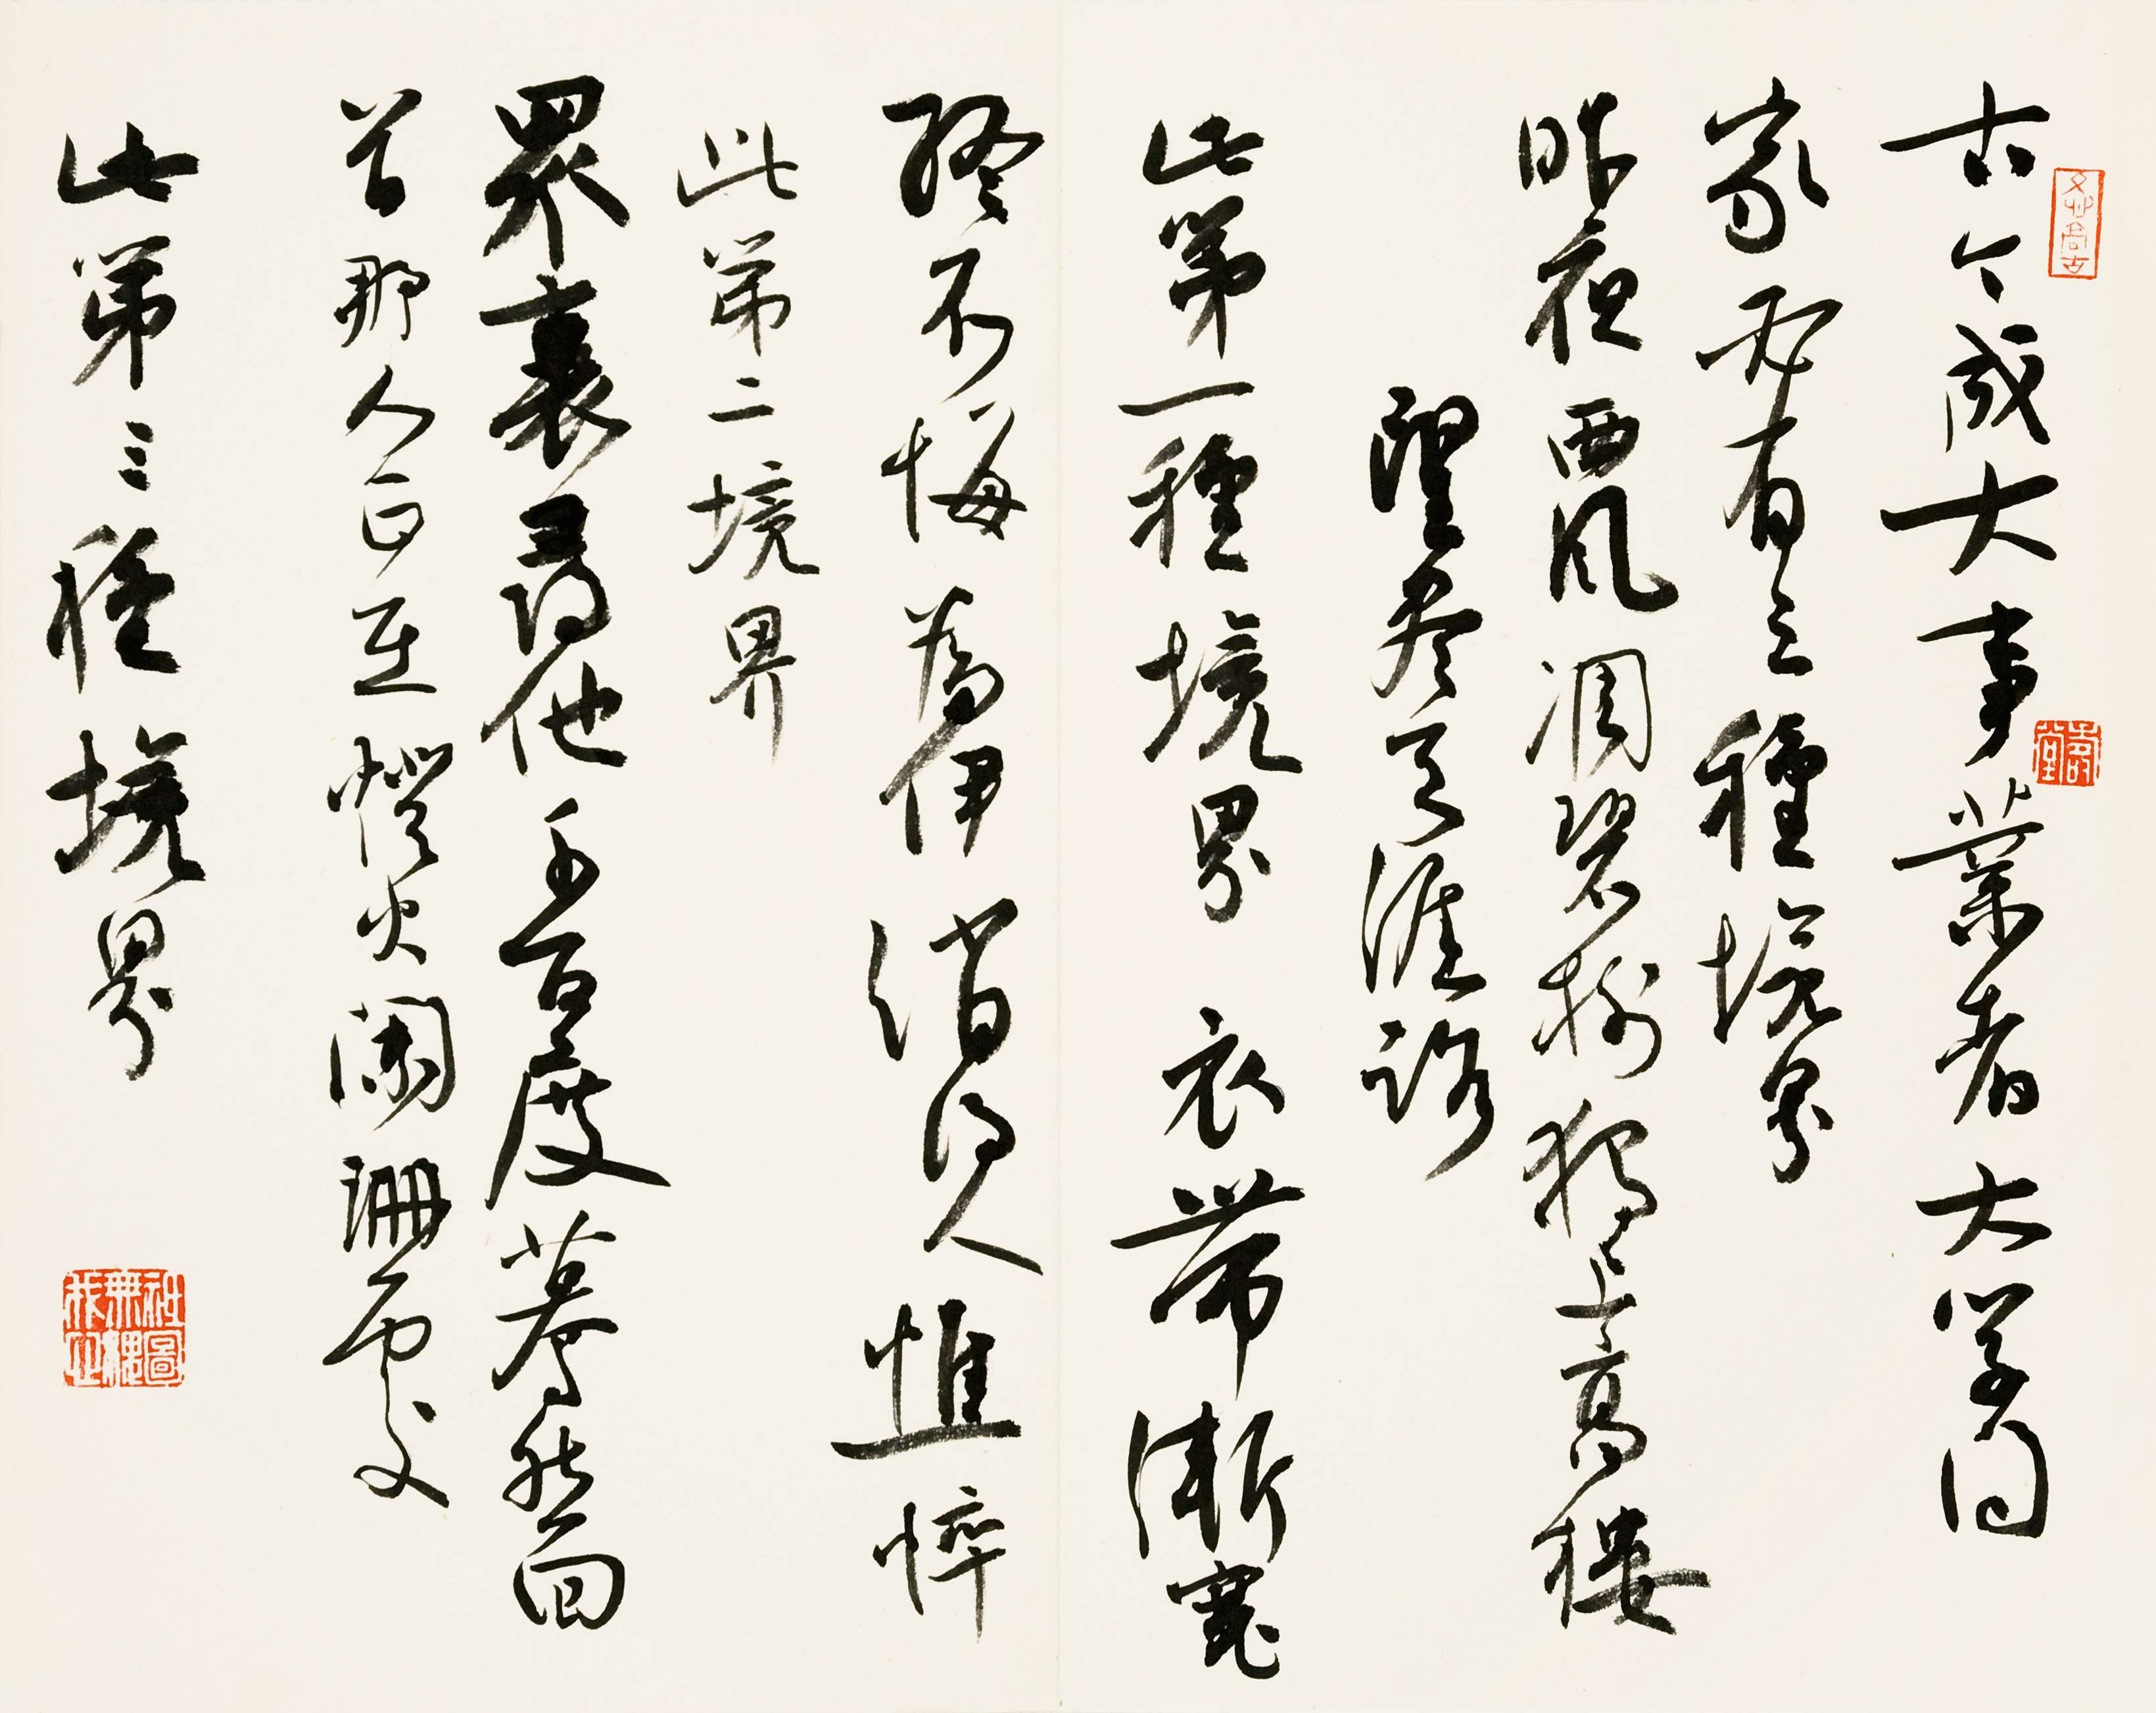 古今成大事業者大学问
家必有三種境界
昨夜西风凋碧樹独上高楼
望尽天涯路
此第一種境界 衣带漸寬
终不悔為伊消得人憔悴
此第二境界
眾裏尋他千百度驀然回
首那人正在燈火阑珊處
此第三種境界